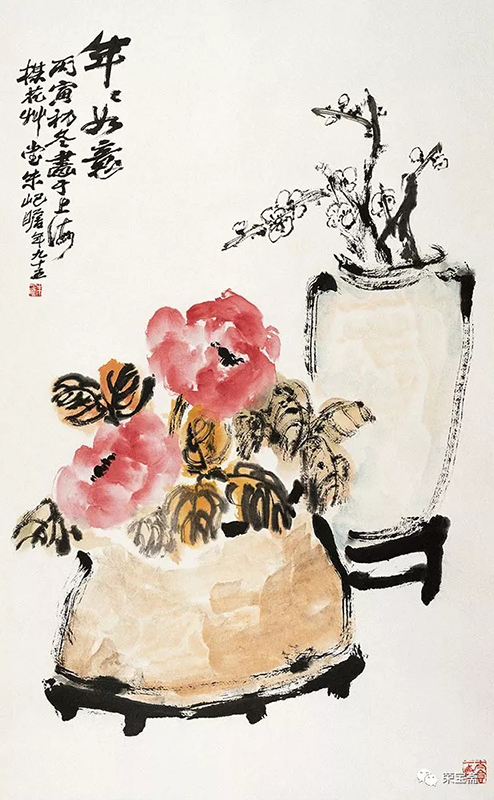 年々如意
丙寅初冬畫于上海
楳花艸堂朱屺瞻年九十五
荣宝斋